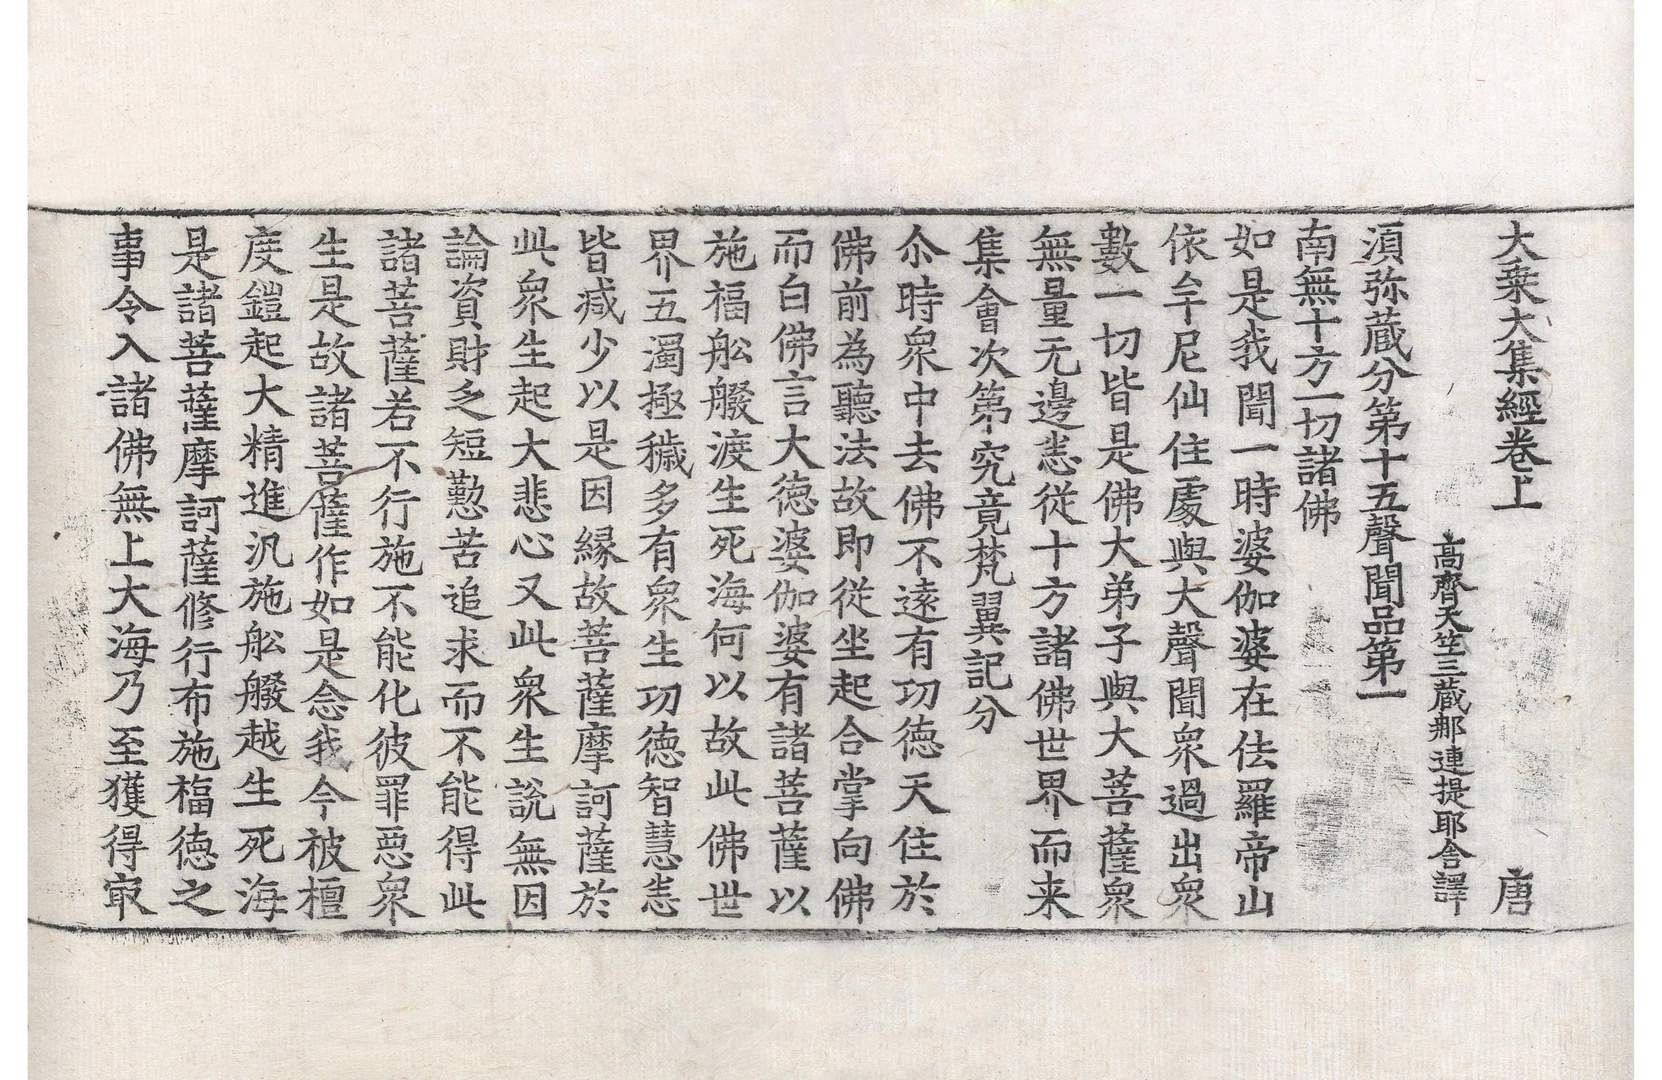 大乗大集經卷上 唐
高齊天竺三藏那連提耶舍譯
湏弥蔵分第十五聲聞品第一
南無十方一切諸佛
如是我聞一時婆伽婆在佉羅帝山
依牟尼仙住處與大聲聞衆過出衆
數一切皆是佛大弟子與大菩薩衆
無量无邊悉從十方諸佛世界而来
集會次第究竟梵翼記分
尒時衆中去佛不遠有功德天住於
佛前為聽法故即從坐起合掌向佛
而白佛言大德婆伽婆有諸菩薩以
施福舩艘渡生死海何以故此佛世
界五濁極穢多有衆生功德智慧悉
皆減少以是因縁故菩薩摩訶薩於
此衆生起大悲心又此衆生說無因
論資財乏短懃苦追求而不能得此
諸菩薩若不行施不能化彼罪惡衆
生是故諸菩薩作如是念我今被檀
度鎧起大精進汎施舩艘越生死海
是諸菩薩摩訶薩修行布施福德之
事令入諸佛無上大海乃至獲得㝡